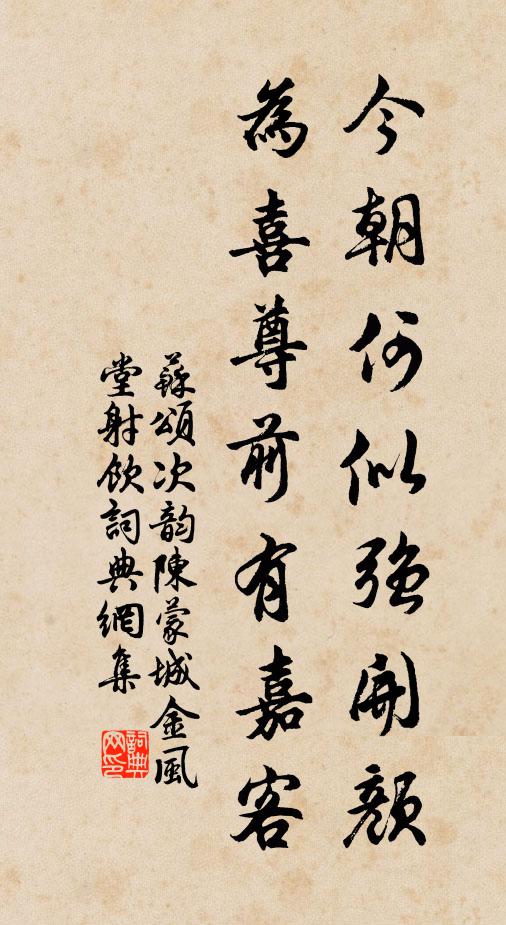 今朝何似強開顏
為喜尊前有嘉客
蘇頌次韵陳蒙城金風
堂射飲詞典網集
詞典網印